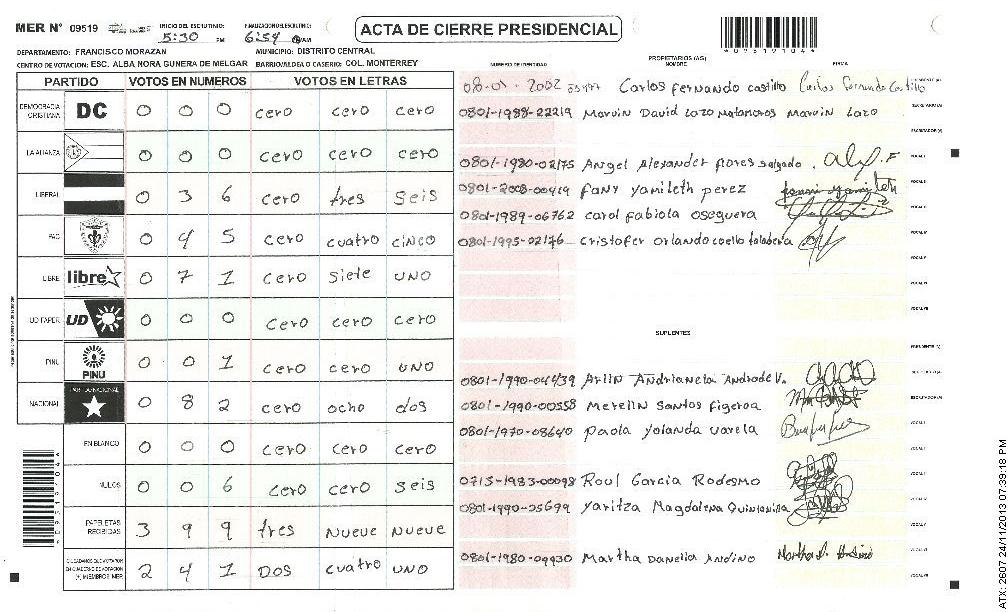 MER Nº 09519 INICIO DEL ESCRUTINIO: 5:30 PM FINALIZACION DEL ESCRUTINIO: 6:54 AM
ACTA DE CIERRE PRESIDENCIAL
DEPARTAMENTO: FRANCISCO MORAZAN MUNICIPIO: DISTRITO CENTRAL
CENTRO DE VOTACION: ESC. ALBA NORA GUNERA DE MELGAR BARRIO/ALDEA O CASERIO: COL. MONTERREY
PARTIDO VOTOS EN NUMEROS VOTOS EN LETRAS
DEMOCRACIA CRISTIANA DC 0 0 0 cero cero cero
LA ALIANZA 0 0 0 cero cero cero
LIBERAL 0 3 6 cero tres seis
PAC 0 4 5 cero cuatro cinco
LIBRE libre 0 7 1 cero siete uno
UD FAPER UD 0 0 0 cero cero cero
PINU PINU 0 0 1 cero cero uno
NACIONAL PARTIDO NACIONAL 0 8 2 cero ocho dos
EN BLANCO 0 0 0 cero cero cero
NULOS 0 0 6 cero cero seis
PAPELETAS RECIBIDAS 3 9 9 tres nueve nueve
CIUDADANOS QUE VOTARON EN CUADERNO DE VOTACION (+) MIEMBROS MER 2 4 1 Dos cuatro uno
NUMERO DE IDENTIDAD PROPIETARIOS (AS) NOMBRE FIRMA
08-01-2002 Carlos fernando castillo Carlos Fernando Castillo
0801-1988-22219 Marvin David Lazo Matamoros Marvin Lazo
0801-1980-02175 Angel Alexander flores salgado
0801-2008-00419 fany yamileth perez
0801-1989-06762 carol fabiola oseguera
0801-1995-02176 cristofer orlando coello taladera
SUPLENTES
0801-1990-04439 Arlin Andrianela Andrade V.
0801-1990-00558 Merelin Santos figeroa
0801-1970-08640 paola yolanda varela
0715-1983-00098 Raul Garcia Rodesmo
0801-1990-25699 yaritza Magdalena Quintanilla
0801-1980-09930 Martha Danelia Andino
09519104
ATX: 2607 24/11/2013 07:39:18 PM